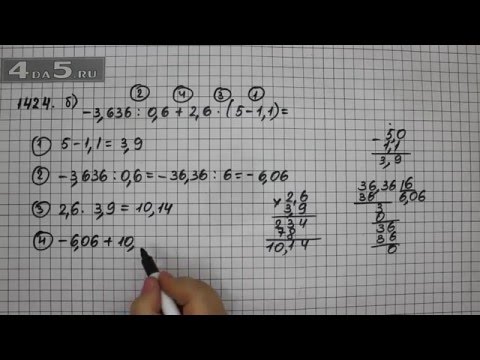 4DA5.RU
1424. б)
② ④ ③ ①
-3,636 : 0,6 + 2,6 · (5-1,1)=
① 5-1,1=3,9
② -3,636:0,6=-36,36:6=-6,06
③ 2,6 · 3,9 = 10,14
④ -6,06+10,
- 5,0
1,1
3,9
× 2,6
3,9
234
78
10,14
36,36|6
36 6,06
3
0
36
36
0